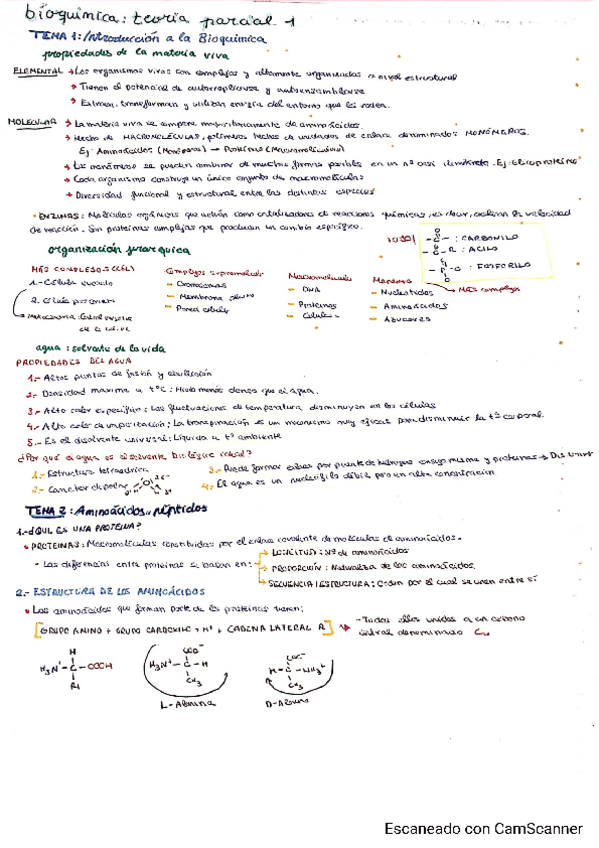 bioquímica: teoría parcial 1
TEMA 1: Introducción a la Bioquímica
propiedades de la materia viva
ELEMENTAL → Los organismos vivos son complejos y altamente organizados a nivel estructural
→ Tienen el potencial de autorreplicarse y autoensamblarse
→ Extraen, transforman y utilizan energía del entorno que les rodea.
MOLECULAR → La materia viva se compone mayoritariamente de aminoácidos.
→ Hecho de MACROMOLÉCULAS, polímeros hechos de unidades de enlace denominados MONÓMEROS.
Ej: Aminoácidos (Monómeros) → Proteínas (Macromoléculas)
→ Los monómeros se pueden combinar de muchas formas posibles en un nº casi ilimitado. Ej: Glicoproteína
→ Cada organismo construye un único conjunto de macromoléculas
→ Diversidad funcional y estructural entre las distintas especies
• ENZIMAS: Moléculas orgánicas que actúan como catalizadores de reacciones químicas, es decir, aceleran la velocidad
de reacción. Son proteínas complejas que producen un cambio específico.
organización jerárquica
- C - : CARBONILO
- C - R : ACILO
- P - O : FOSFORILO
MÁS COMPLEJOS (CÉL)
1.- Célula eucariota
2. Célula procariota
Complejos supramoleculares
- Cromosomas
- Membrana
- Pared celular
Macromoléculas
- DNA
- Proteínas
- Celulosa
Monómeros → Más complejos
- Nucleótidos
- Aminoácidos
- Azúcares
agua: solvente de la vida
PROPIEDADES DEL AGUA
1.- Altos puntos de fusión y ebullición
2.- Densidad máxima a 4ºC: Hielo menos denso que el agua.
3.- Alto calor específico: Las fluctuaciones de temperatura disminuyen en las células
4.- Alto calor de vaporización: La transpiración es un mecanismo muy eficaz para disminuir la tª corporal.
5.- Es el disolvente universal: Líquida a tª ambiente
¿Por qué el agua es el solvente biológico ideal?
1.- Estructura tetraédrica
2.- Carácter dipolar
3.- Puede formar enlaces por puente de hidrógeno consigo misma y proteínas →
4.- El agua es un nucleófilo débil pero en alta concentración
TEMA 2: Aminoácidos y péptidos
1.- ¿QUE ES UNA PROTEÍNA?
• PROTEÍNAS: Macromoléculas constituidas por el enlace covalente de moléculas de aminoácidos.
- Las diferencias entre proteínas se basan en: → LONGITUD: Nº de aminoácidos
→ PROPORCIÓN: Naturaleza de los aminoácidos.
→ SECUENCIA / ESTRUCTURA: Orden por el cual se unen entre sí
2.- ESTRUCTURA DE LOS AMINOÁCIDOS
• Los aminoácidos que forman parte de las proteínas tienen:
[GRUPO AMINO + GRUPO CARBOXILO + H + CADENA LATERAL R] → - Todos ellos unidos a un carbono
central denominado Cα
H COO⁻ COO⁻
H₃N⁺ - C - COOH H₃N⁺ - C - H H - C - NH₃⁺
R CH₃ CH₃
L-Alanina D-Alanina
Escaneado con CamScanner